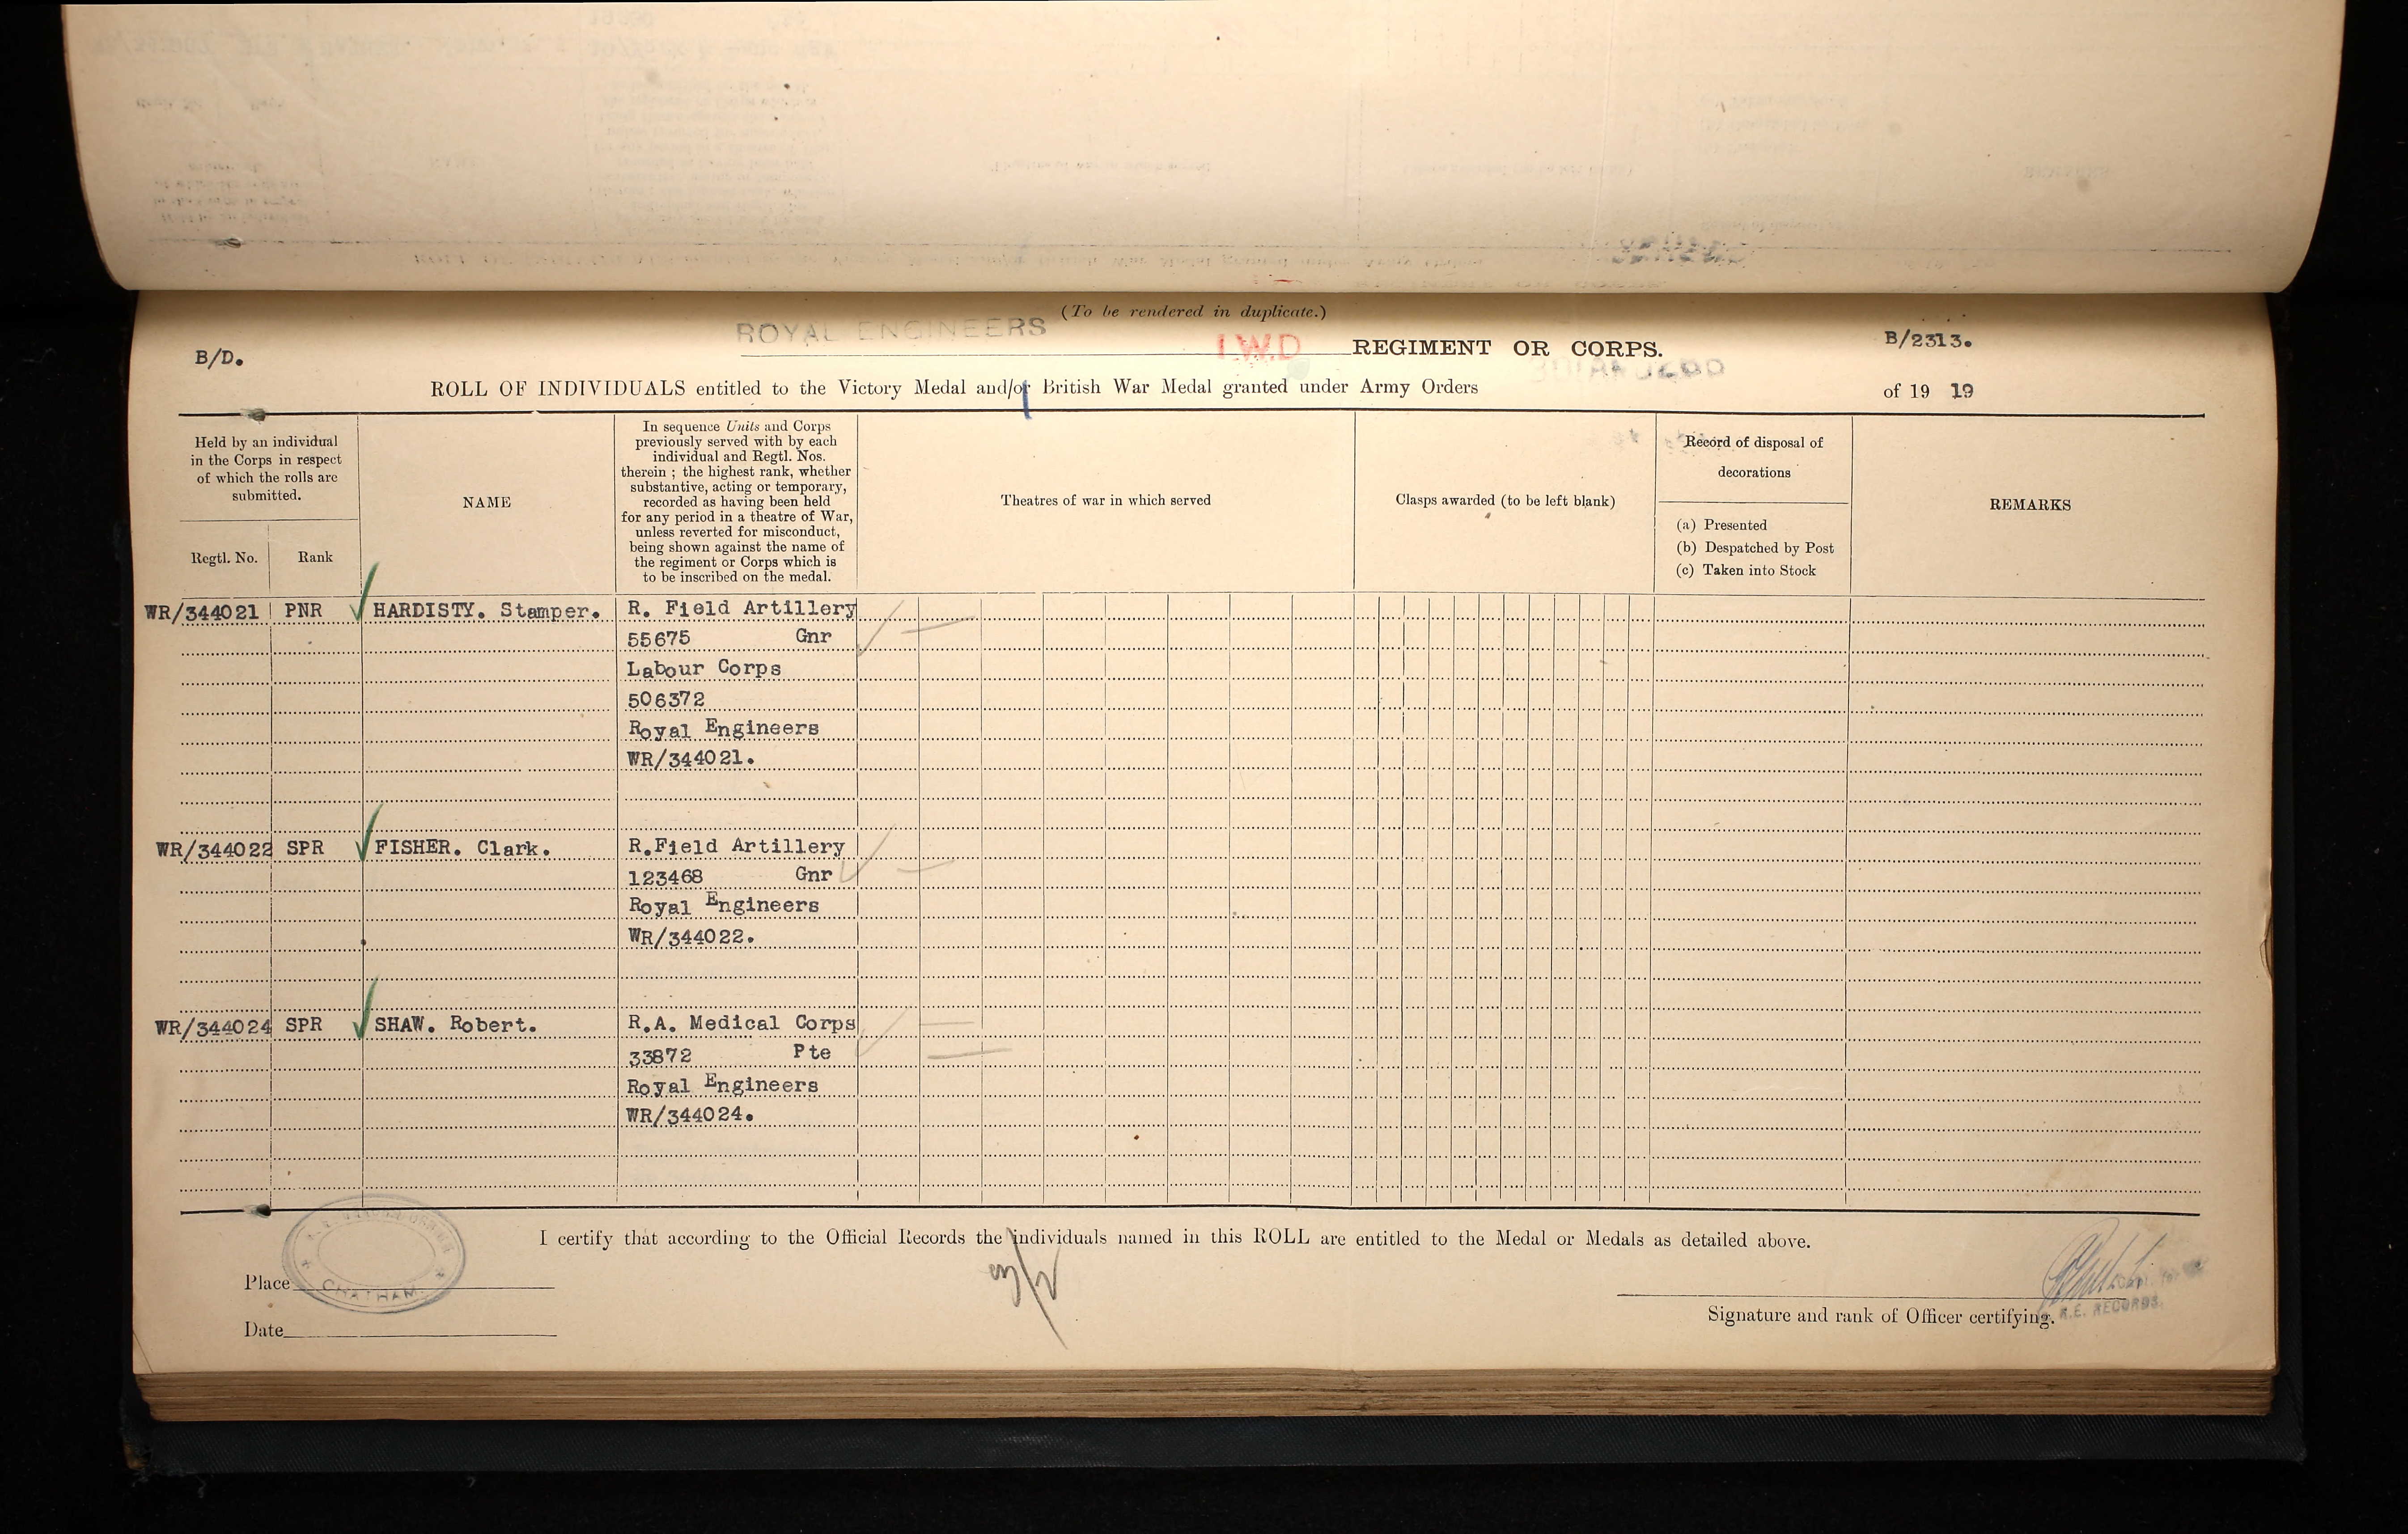 (To be rendered in duplicate.)
ROYAL ENGINEERS I.W.D REGIMENT OR CORPS. B/2313.
B/D.
ROLL OF INDIVIDUALS entitled to the Victory Medal and/or British War Medal granted under Army Orders of 19 19
Held by an individual
in the Corps in respect
of which the rolls are
submitted.
Regtl. No. Rank
NAME
In sequence Units and Corps
previously served with by each
individual and Regtl. Nos.
therein ; the highest rank, whether
substantive, acting or temporary,
recorded as having been held
for any period in a theatre of War,
unless reverted for misconduct,
being shown against the name of
the regiment or Corps which is
to be inscribed on the medal.
Theatres of war in which served
Clasps awarded (to be left blank)
Record of disposal of
decorations
(a) Presented
(b) Despatched by Post
(c) Taken into Stock
REMARKS
WR/344021 PNR HARDISTY. Stamper. R. Field Artillery
55675 Gnr
Labour Corps
506372
Royal Engineers
WR/344021.
WR/344022 SPR FISHER. Clark. R.Field Artillery
123468 Gnr
Royal Engineers
WR/344022.
WR/344024 SPR SHAW. Robert. R.A. Medical Corps
33872 Pte
Royal Engineers
WR/344024.
I certify that according to the Official Records the individuals named in this ROLL are entitled to the Medal or Medals as detailed above.
Place
CHATHAM
Date
Signature and rank of Officer certifying.
R.E. RECORDS.